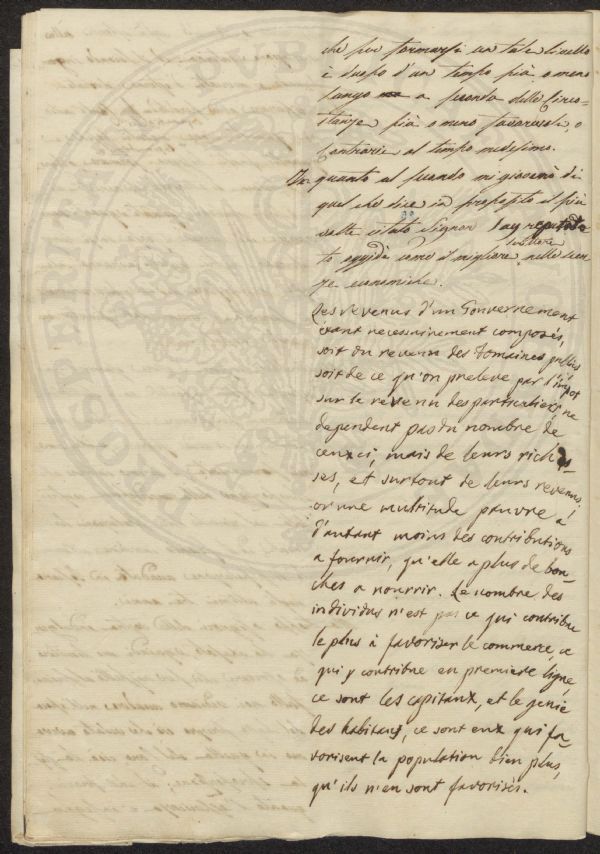 che per formarsi un tale livello
è duopo d'un tempo più o meno
lungo a seconda delle Circo-
stanze più o meno favorevoli, o
contrarie al tempo medesimo.
In quanto al secondo mi gioverà di
quel che dice in proposito il più
volte citato Signor Say reputa-
to oggidì come il migliore scrittore nelle scien-
ze economiche.
Les revenus d'un Gouvernement
étant necessairement composés,
soit du revenu des Domaines publics
soit de ce qu'on preleve par l'impot
sur le revenu des particuliers, ne
dependent pas du nombre de
ceux ci, mais de leurs riches-
ses, et surtout de leurs revenus.
or une multitude pauvre a
d'autant moins des contributions
a fournir, qu'elle a plus de bou-
ches a nourrir. Le nombre des
individus n'est pas ce qui contribue
le plus à favoriser le commerce, ce
qui y contribue en premiere ligne,
ce sont les capitaux, et le genie
des habitants, ce sont eux qui fa-
vorisent la population bien plus,
qu'ils n'en sont favorisés.